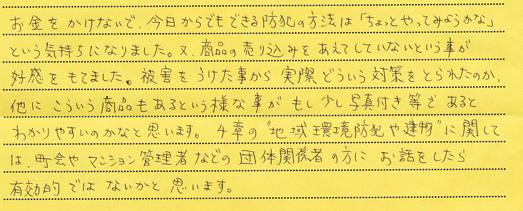 お金をかけないで、今日からでもできる防犯の方法は「ちょっとやってみようかな」
という気持ちになりました。又、商品の売り込みをあえてしていないという事が
好感をもてました。被害をうけた事から実際どういう対策をとられたのか、
他にこういう商品もあるという様な事がもし少し写真付き等であると
わかりやすいのかなと思います。4章の“地域環境防犯や建物”に関して
は、町会やマンション管理者などの団体関係者の方にお話をしたら
有効的ではないかと思います。